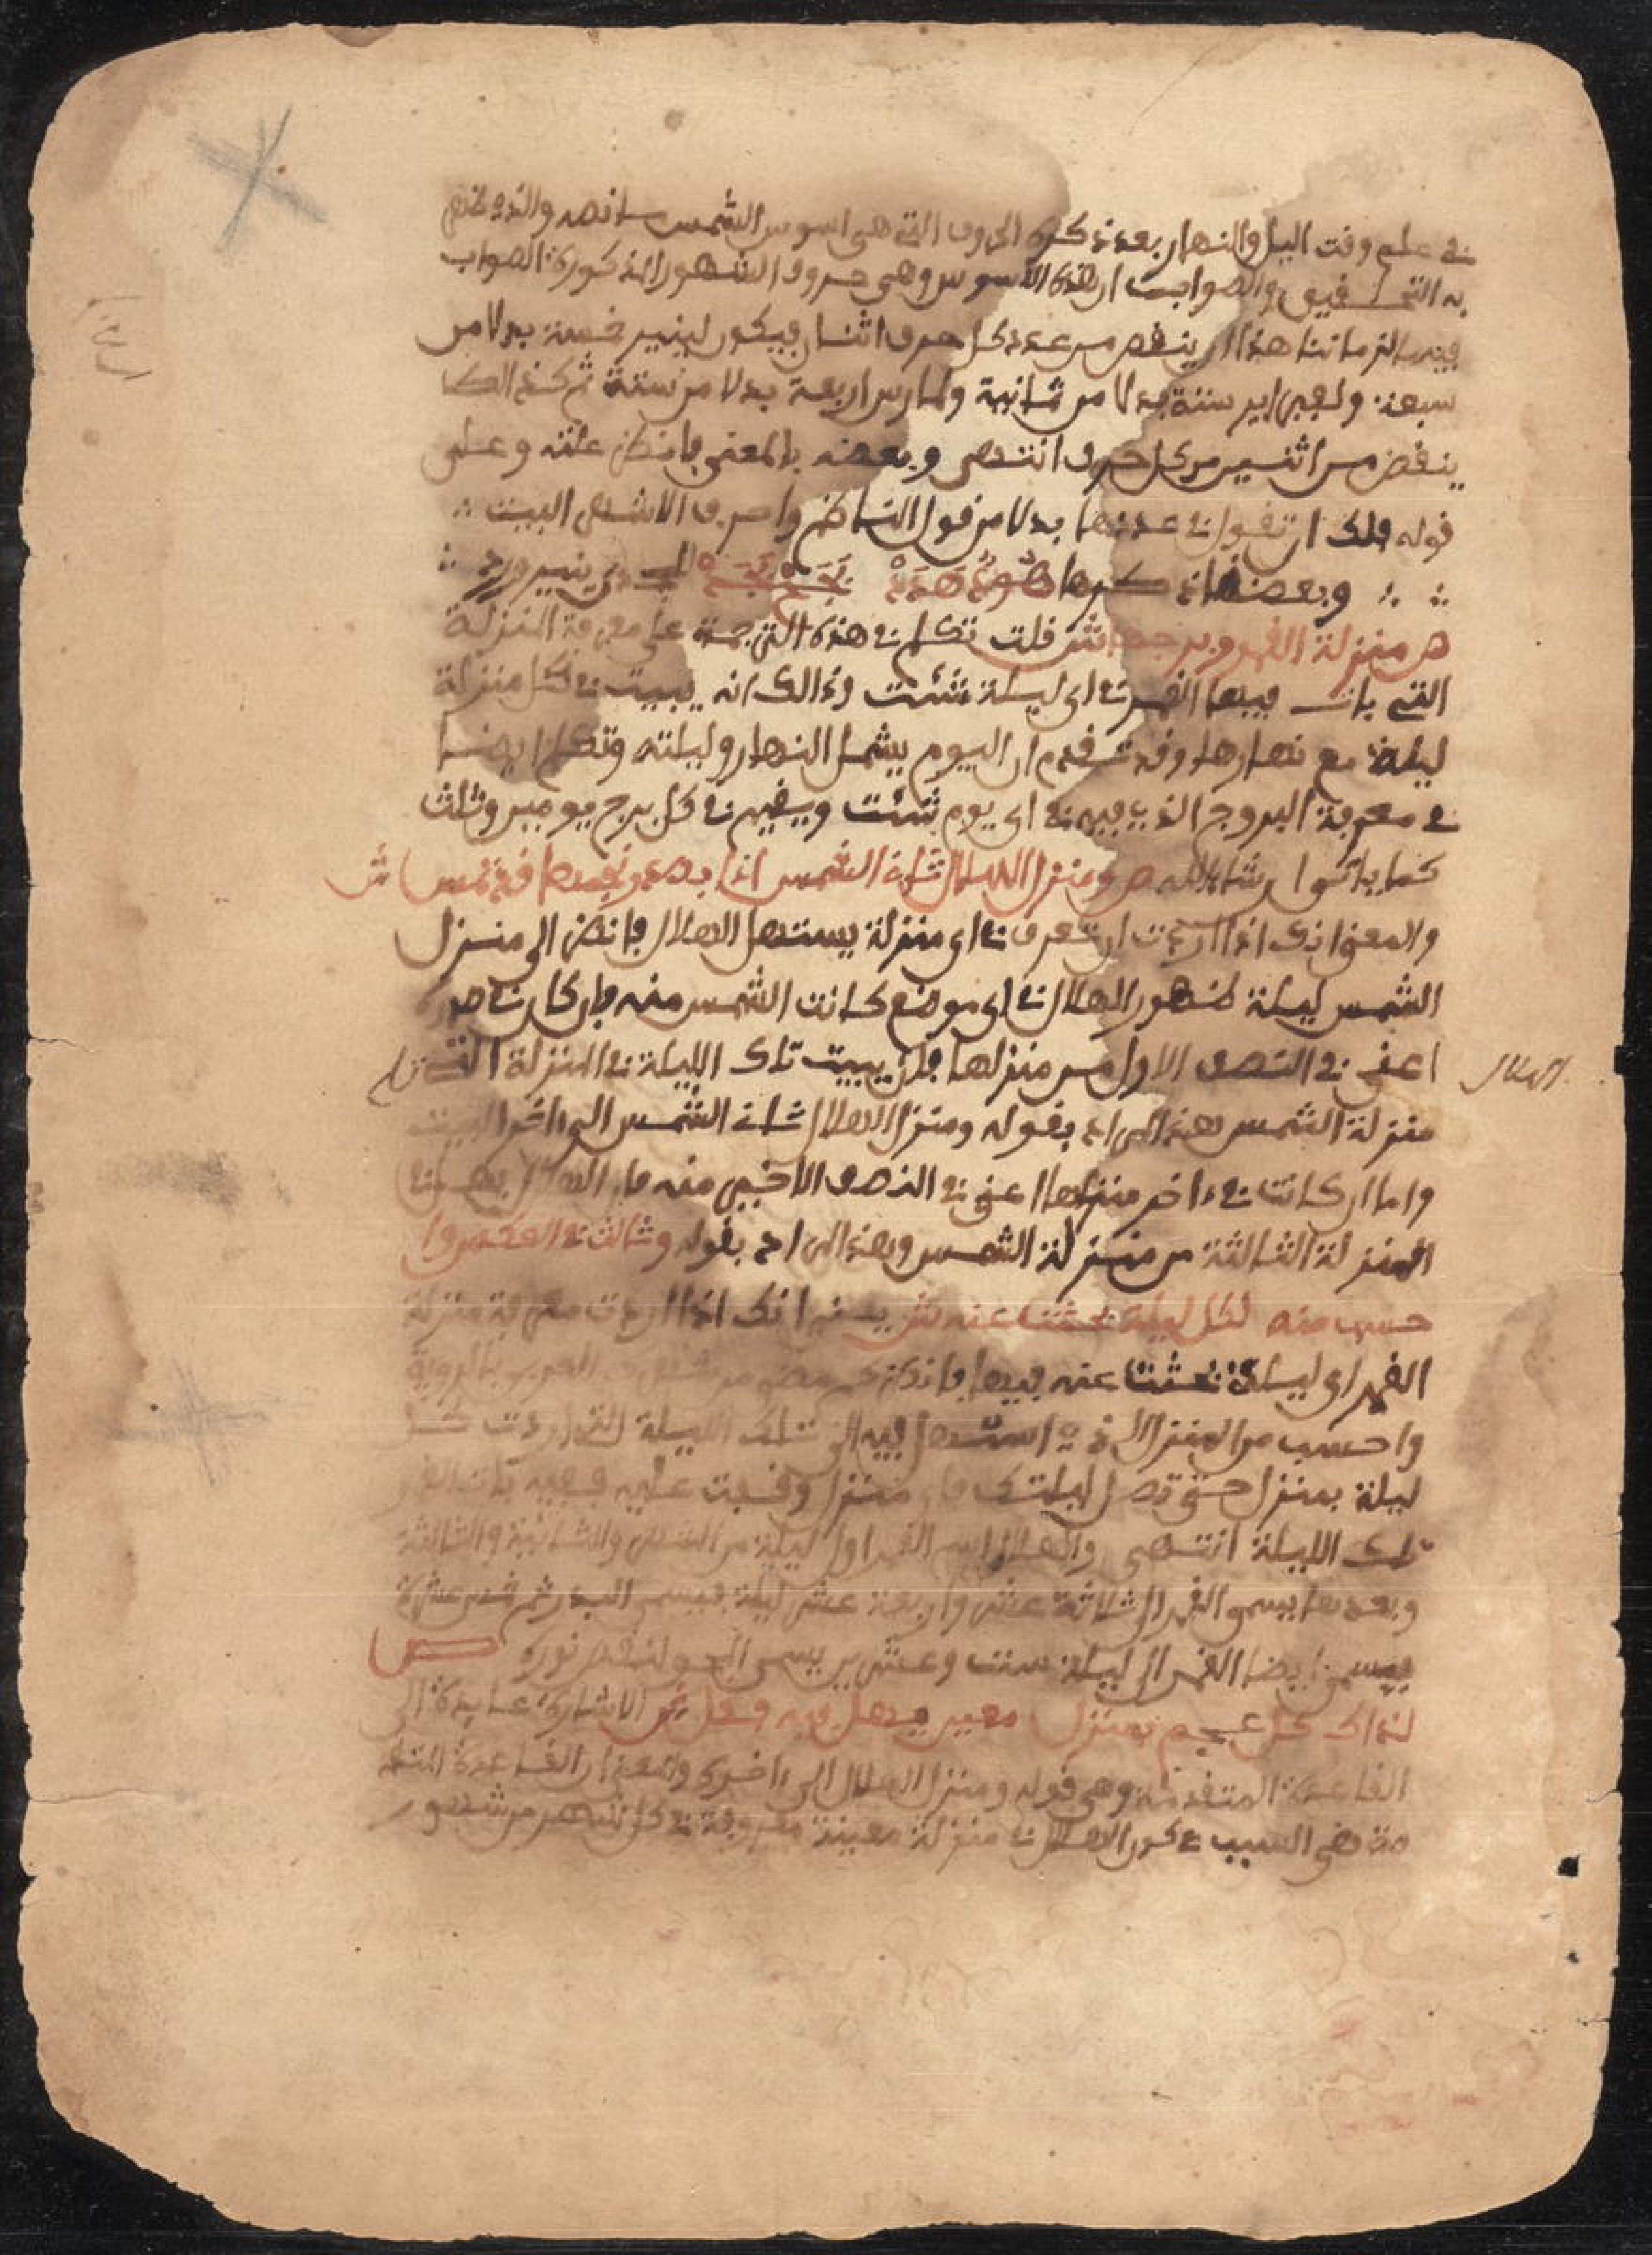 في علم وقت اليل والنهار بعد ذكره الحروف التي هي اسوس الشمس ما نصه والذي ظهر
به التحقيق والصواب ان هذه الاسوس وهي حروف الشهور المذكورة الصواب
فيها لزماننا هذا ان ينقص من عدد كل حرف اثنان فيكون لينير خمسة بدلا من
سبعة ولفبراير ستة بدلا من ثمانية ولمارس اربعة بدلا من ستة ثم كذالك
ينقص من اثنين من كل حرف انتهى وبعضه بالمعنى فانظر علته وعلى
قوله فلك ان تقول في عدتها بدلا من قول الناظم واصرف الاشهر البيت
وبعضها ذكرها
ص منزلة القمر وبرجه ش قلت تكلم في هذه الترجمة على معرفة المنزلة
التي بات فيها القمر في اي ليلة شئت وذالك انه يبيت في كل منزلة
ليلة مع نهارها وقد تقدم ان اليوم يشمل النهار وليلته وتكلم ايضا
في معرفة البروج الذي فيه في اي يوم شئت ويقيم في كل برج يومين وثلث
كما ياتي ان شاء الله ص ومنزل الهلال ثان الشمس اذا بصدر نصفها قد تمس ش
والمعنى انك اذا اردت ان تعرف في اي منزلة يستهل الهلال فانظر الى منزل
الشمس ليلة ظهور الهلال في اي موضع كانت الشمس منه فان كان في صدره
اعني في النصف الاول من منزلها فان يبيت تلك الليلة في المنزلة التي تلي
الهلال
منزلة الشمس هذا المراد بقوله ومنزل الهلال ثان الشمس الى اخر البيت
واما ان كانت في ءاخر منزلها اعني في النصف الاخير منه فان الهلال يهل في
المنزلة الثالثة من منزلة الشمس وهذا المراد بقوله وثالث في العكس وا
حسب منه لكل ليلة بحثت عنه ش يعني انك اذا اردت معرفة منزلة
القمر اي ليلة بحثت عنه فيها فانظر كم مضى من الشهر العربي بالروية
واحسب من المنزل الذي استهل فيه الى تلك الليلة التي اردت كل
ليلة بمنزل حتى تصل ليلتك فاي منزل وقفت عليه ففيه بات القمر
تلك الليلة انتهى والهلال اسم القمر اول ليلة من الشهر والثانية والثالثة
وبعدها يسمى القمر الى ثلاثة عشر واربعة عشر ليلة فيسمى البدر ثم خمس عشرة
فيسمى ايضا القمر الى ليلة ست وعشرين يسمى لنقص نوره ص
لذاك كل عجم بمنزل معين يهل فيه وقل ش الاشارة عائدة الى
القاعدة المتقدمة وهي قوله ومنزل الهلال الى ءاخره والمعنى ان القاعدة المتقد
مة هي السبب في كون الهلال في منزلة معينة معروفة في كل شهر من شهور